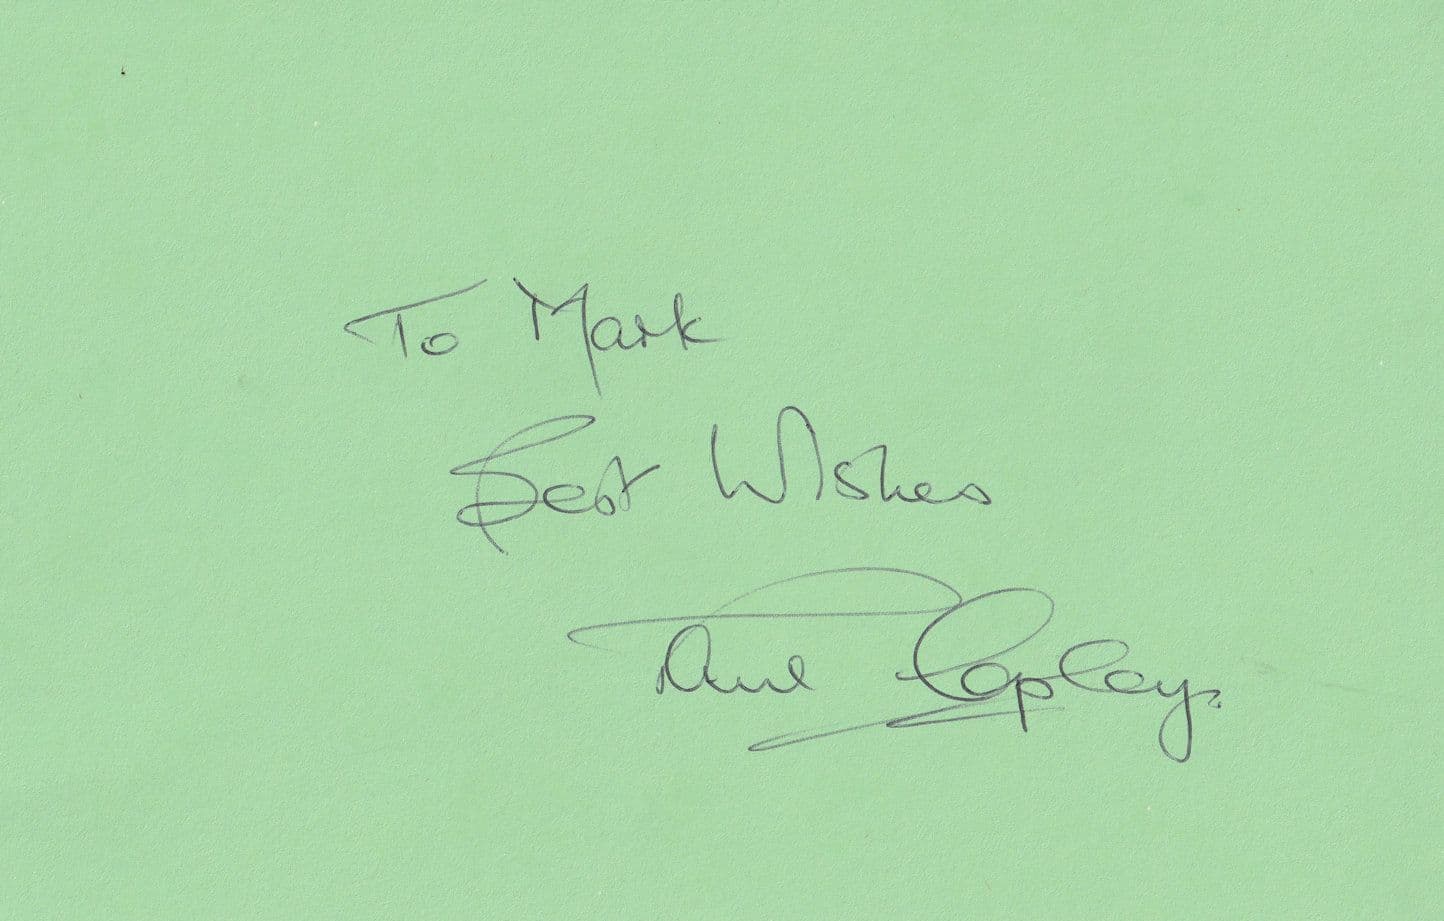 To Mark
Best Wishes
Paul Copley.